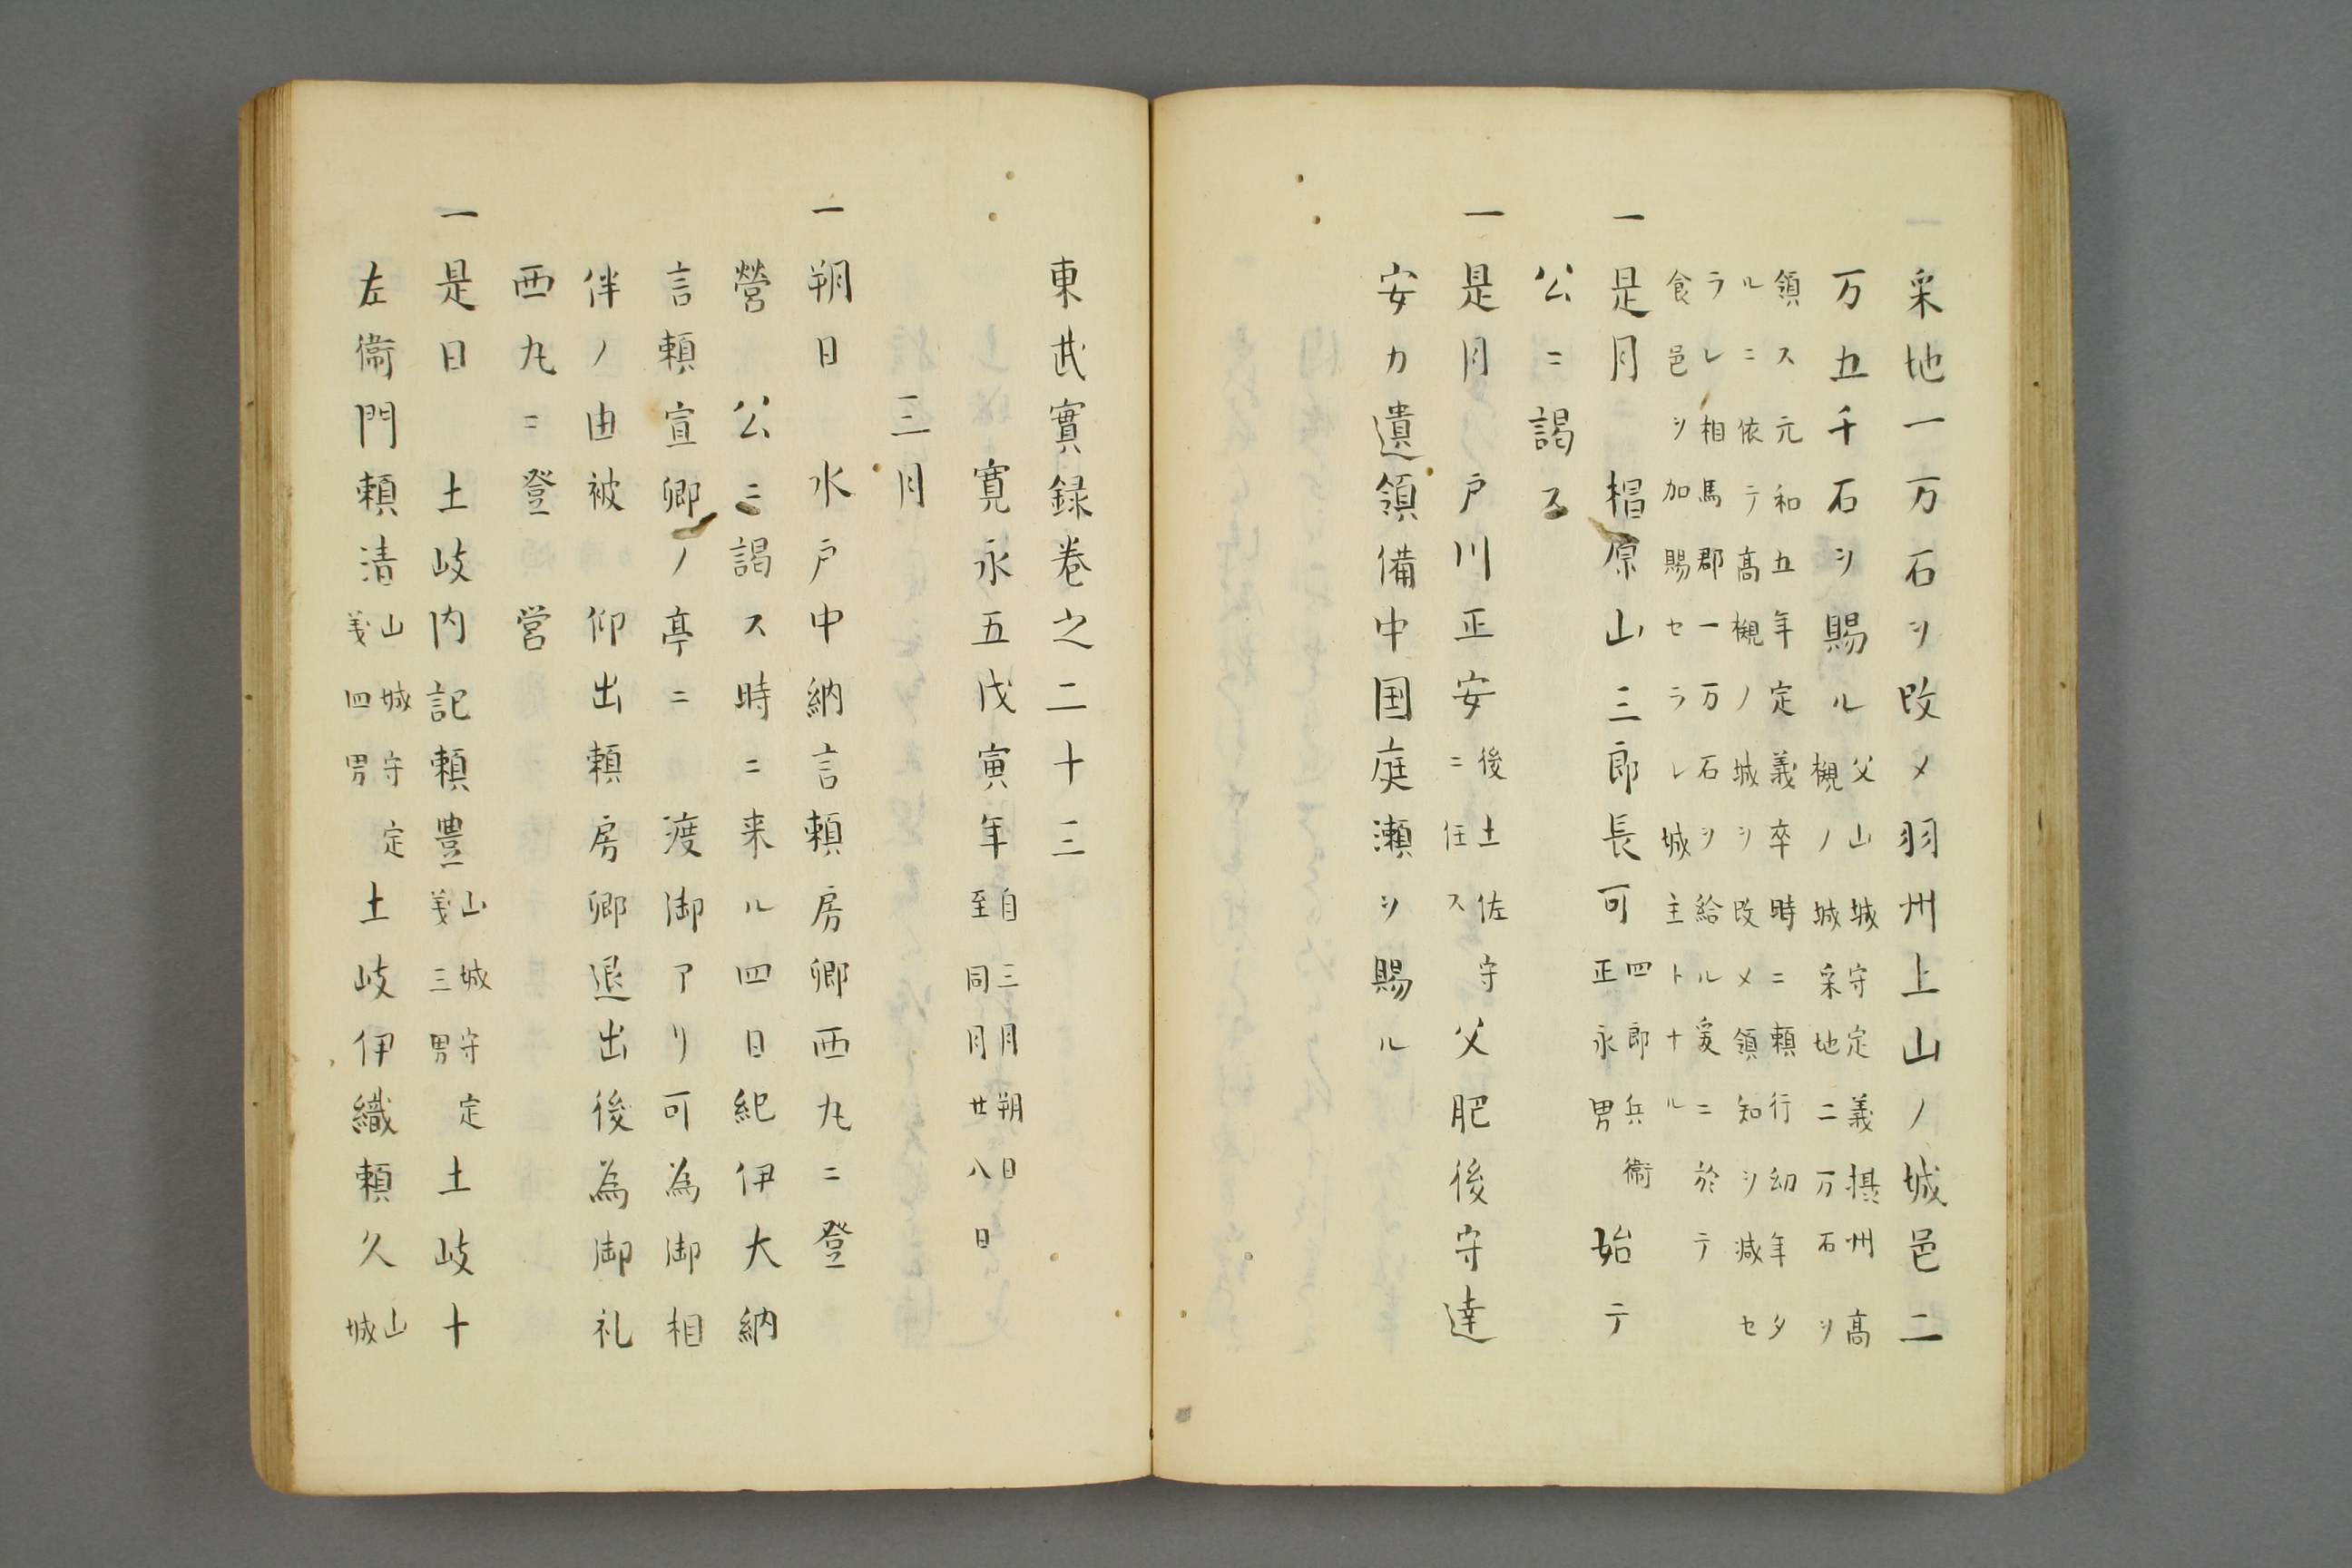 采地一万石ヲ改メ羽州上山ノ城邑二
万五千石ヲ賜ル父山城守定義摂州高
槻ノ城采地二万石ヲ
領ス元和五年定義卒時ニ頼行幼年タ
ルニ依テ高槻ノ城ヲ改メ領知ヲ減セ
ラレ相馬郡一万石ヲ給ル爰ニ於テ
食邑ヲ加賜セラレ城主トナル
一是月椙原山三郎長可四郎兵衛
正永男始テ
公ニ謁ス
一是月戸川正安後土佐守
ニ任ス父肥後守達
安カ遺領備中国庭瀬ヲ賜ル
東武實録巻之二十三
寛永五戊寅年自三月朔日
至同月廿八日
三月
一朔日水戸中納言頼房卿西丸ニ登
營公ニ謁ス時ニ来ル四日紀伊大納
言頼宣卿ノ亭ニ渡御アリ可為御相
伴ノ由被仰出頼房卿退出後為御礼
西丸ニ登営
一是日土岐内記頼豊山城守定
義三男土岐十
左衛門頼清山城守定
義四男土岐伊織頼久山
城